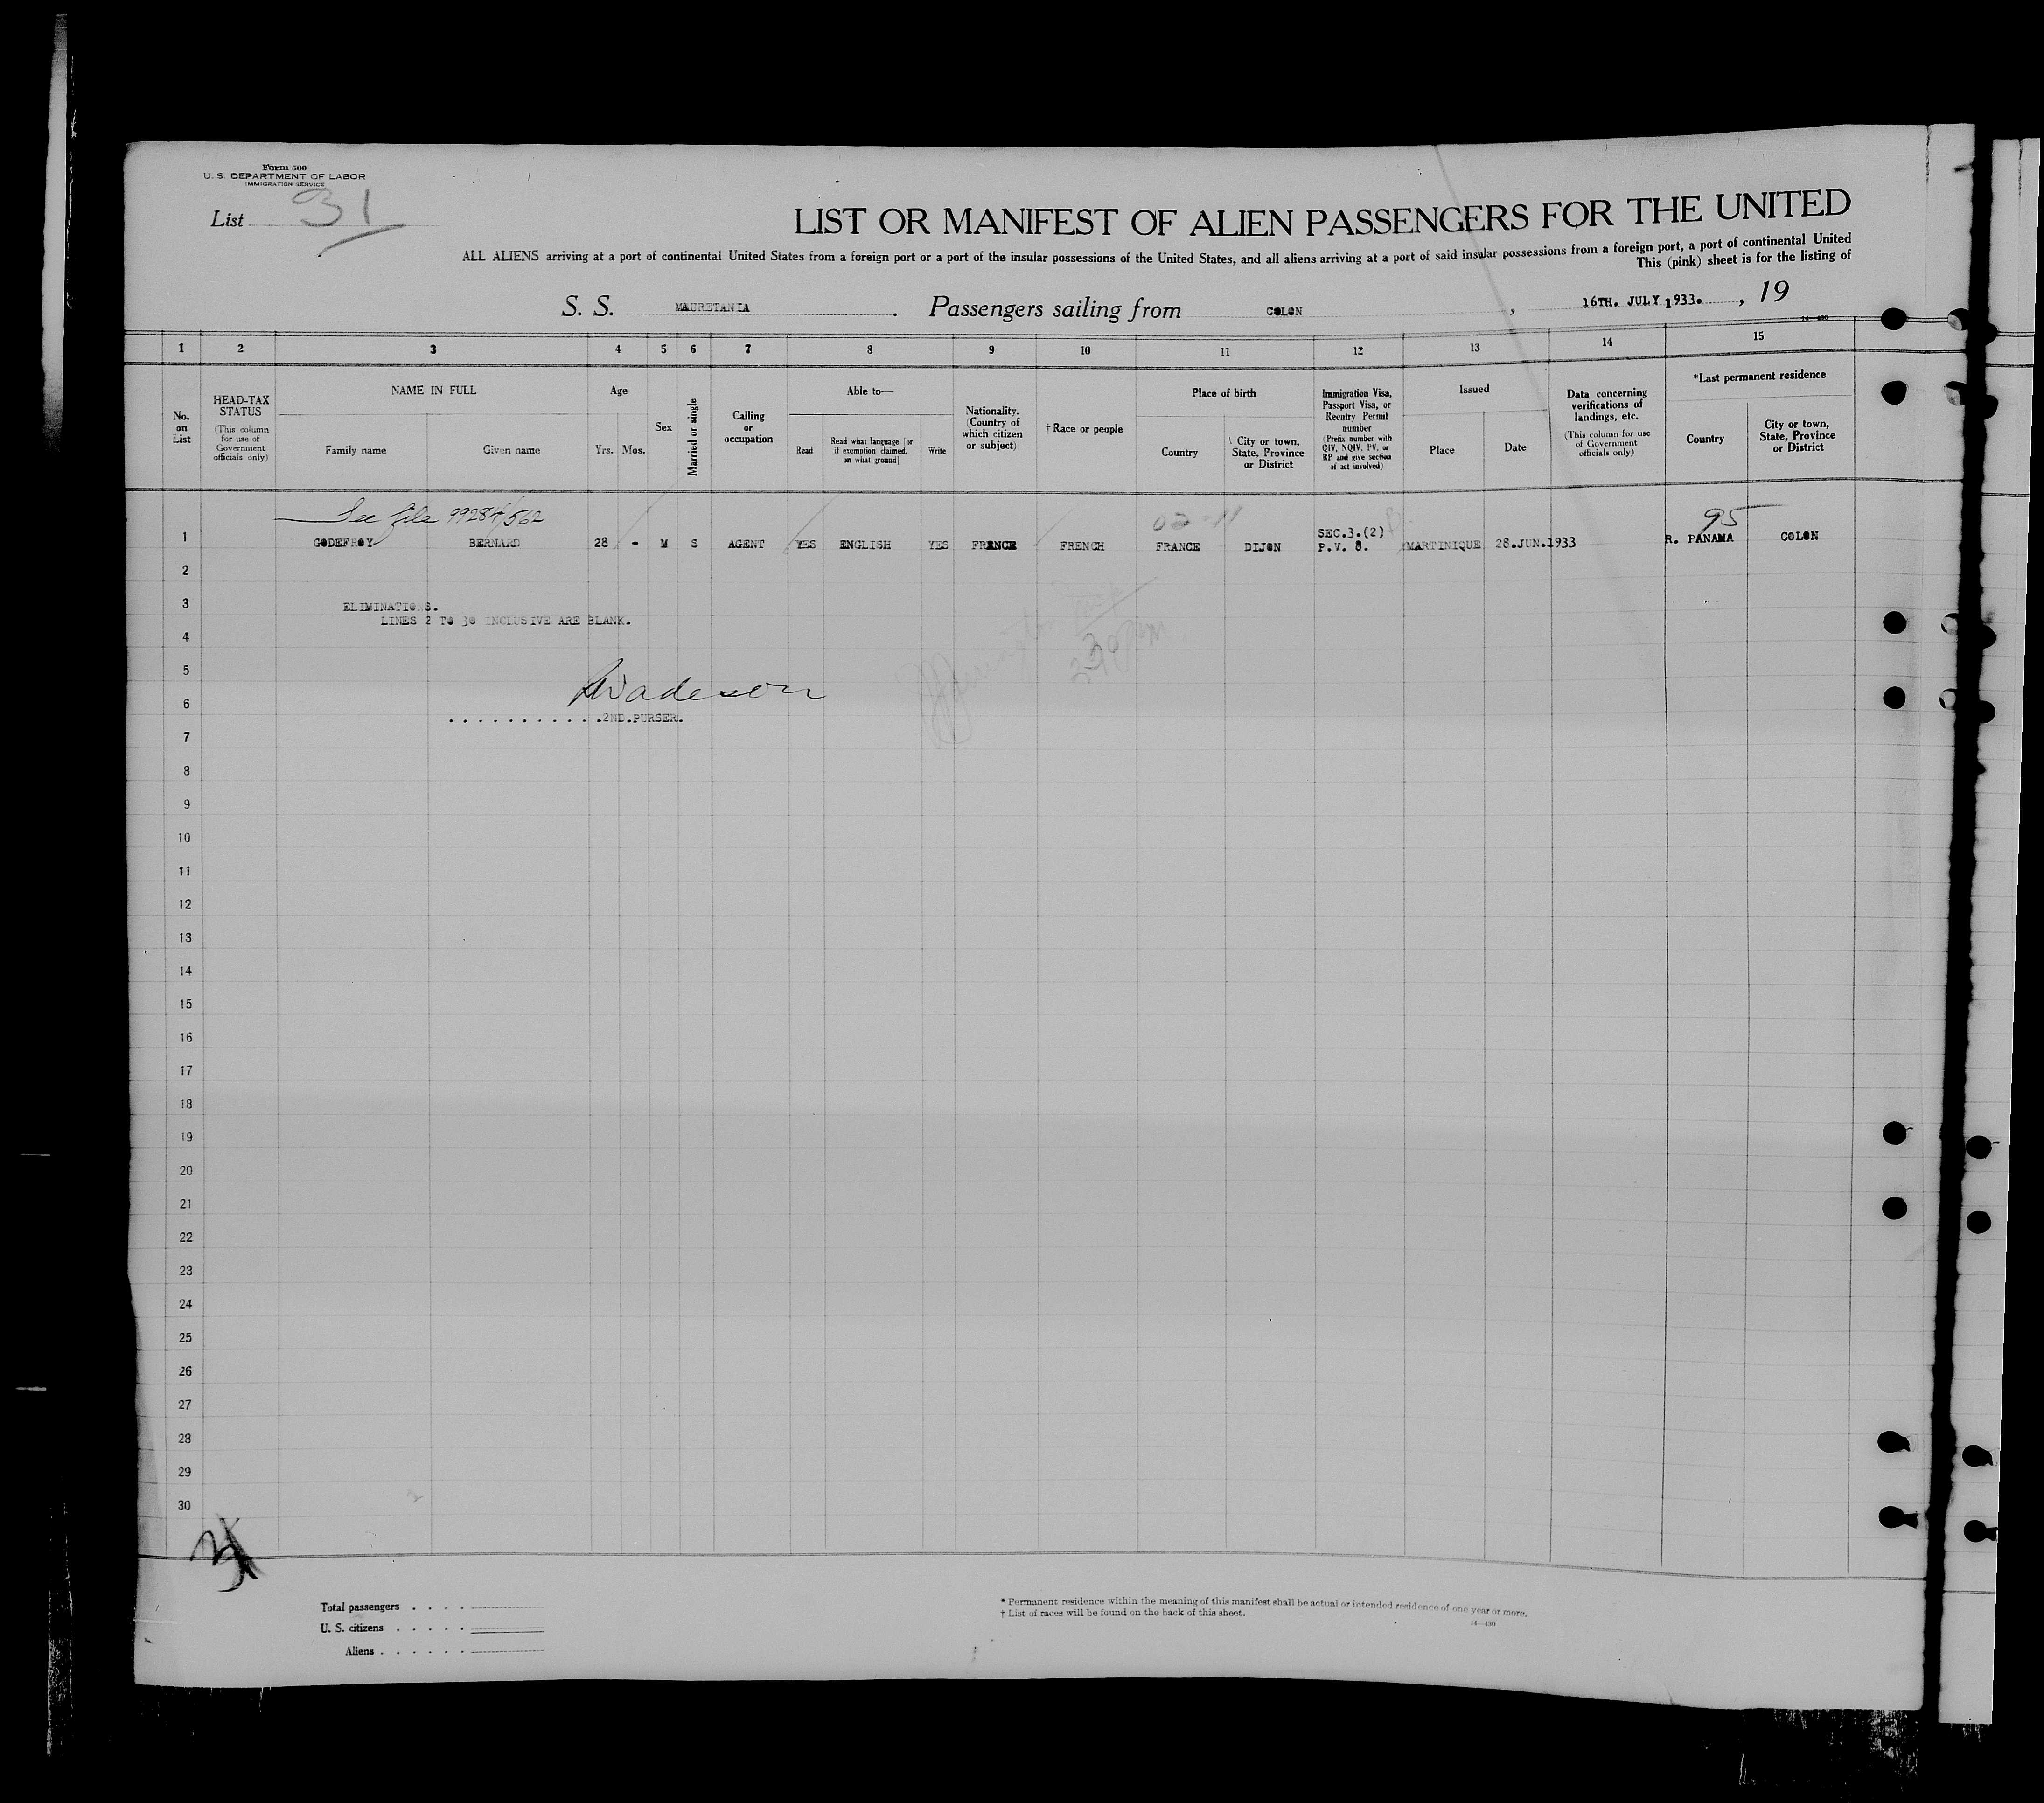 Form 500
U. S. DEPARTMENT OF LABOR
IMMIGRATION SERVICE
List 31
LIST OR MANIFEST OF ALIEN PASSENGERS FOR THE UNITED
ALL ALIENS arriving at a port of continental United States from a foreign port or a port of the insular possessions of the United States, and all aliens arriving at a port of said insular possessions from a foreign port, a port of continental United
This (pink) sheet is for the listing of
S. S. MAURETANIA. Passengers sailing from COLON, 16TH. JULY 1933., 19
1 2 3 4 5 6 7 8 9 10 11 12 13 14 15
No. on List
HEAD-TAX STATUS
(This column for use of Government officials only)
NAME IN FULL
Family name Given name
Age
Yrs. Mos.
Sex
Married or single
Calling or occupation
Able to—
Read
Read what language [or if exemption claimed, on what ground]
Write
Nationality. (Country of which citizen or subject)
†Race or people
Place of birth
Country
City or town, State, Province or District
Immigration Visa, Passport Visa, or Reentry Permit number
(Prefix number with QIV, NQIV, PV, or RP and give section of act involved)
Issued
Place Date
Data concerning verifications of landings, etc.
(This column for use of Government officials only)
*Last permanent residence
Country
City or town, State, Province or District
See file 99284/562
95
1 GODEFROY BERNARD 28 - M S AGENT YES ENGLISH YES FRANCE FRENCH FRANCE DIJON SEC.3.(2) P.V. 8. MARTINIQUE 28.JUN.1933 R. PANAMA COLON
2
3 ELIMINATIONS.
LINES 2 TO 30 INCLUSIVE ARE BLANK.
4
5
Wadeson
6
...........2ND.PURSER.
7
8
9
10
11
12
13
14
15
16
17
18
19
20
21
22
23
24
25
26
27
28
29
30
Total passengers . . . .
U. S. citizens . . . . .
Aliens . . . . . .
* Permanent residence within the meaning of this manifest shall be actual or intended residence of one year or more.
† List of races will be found on the back of this sheet.
14—430